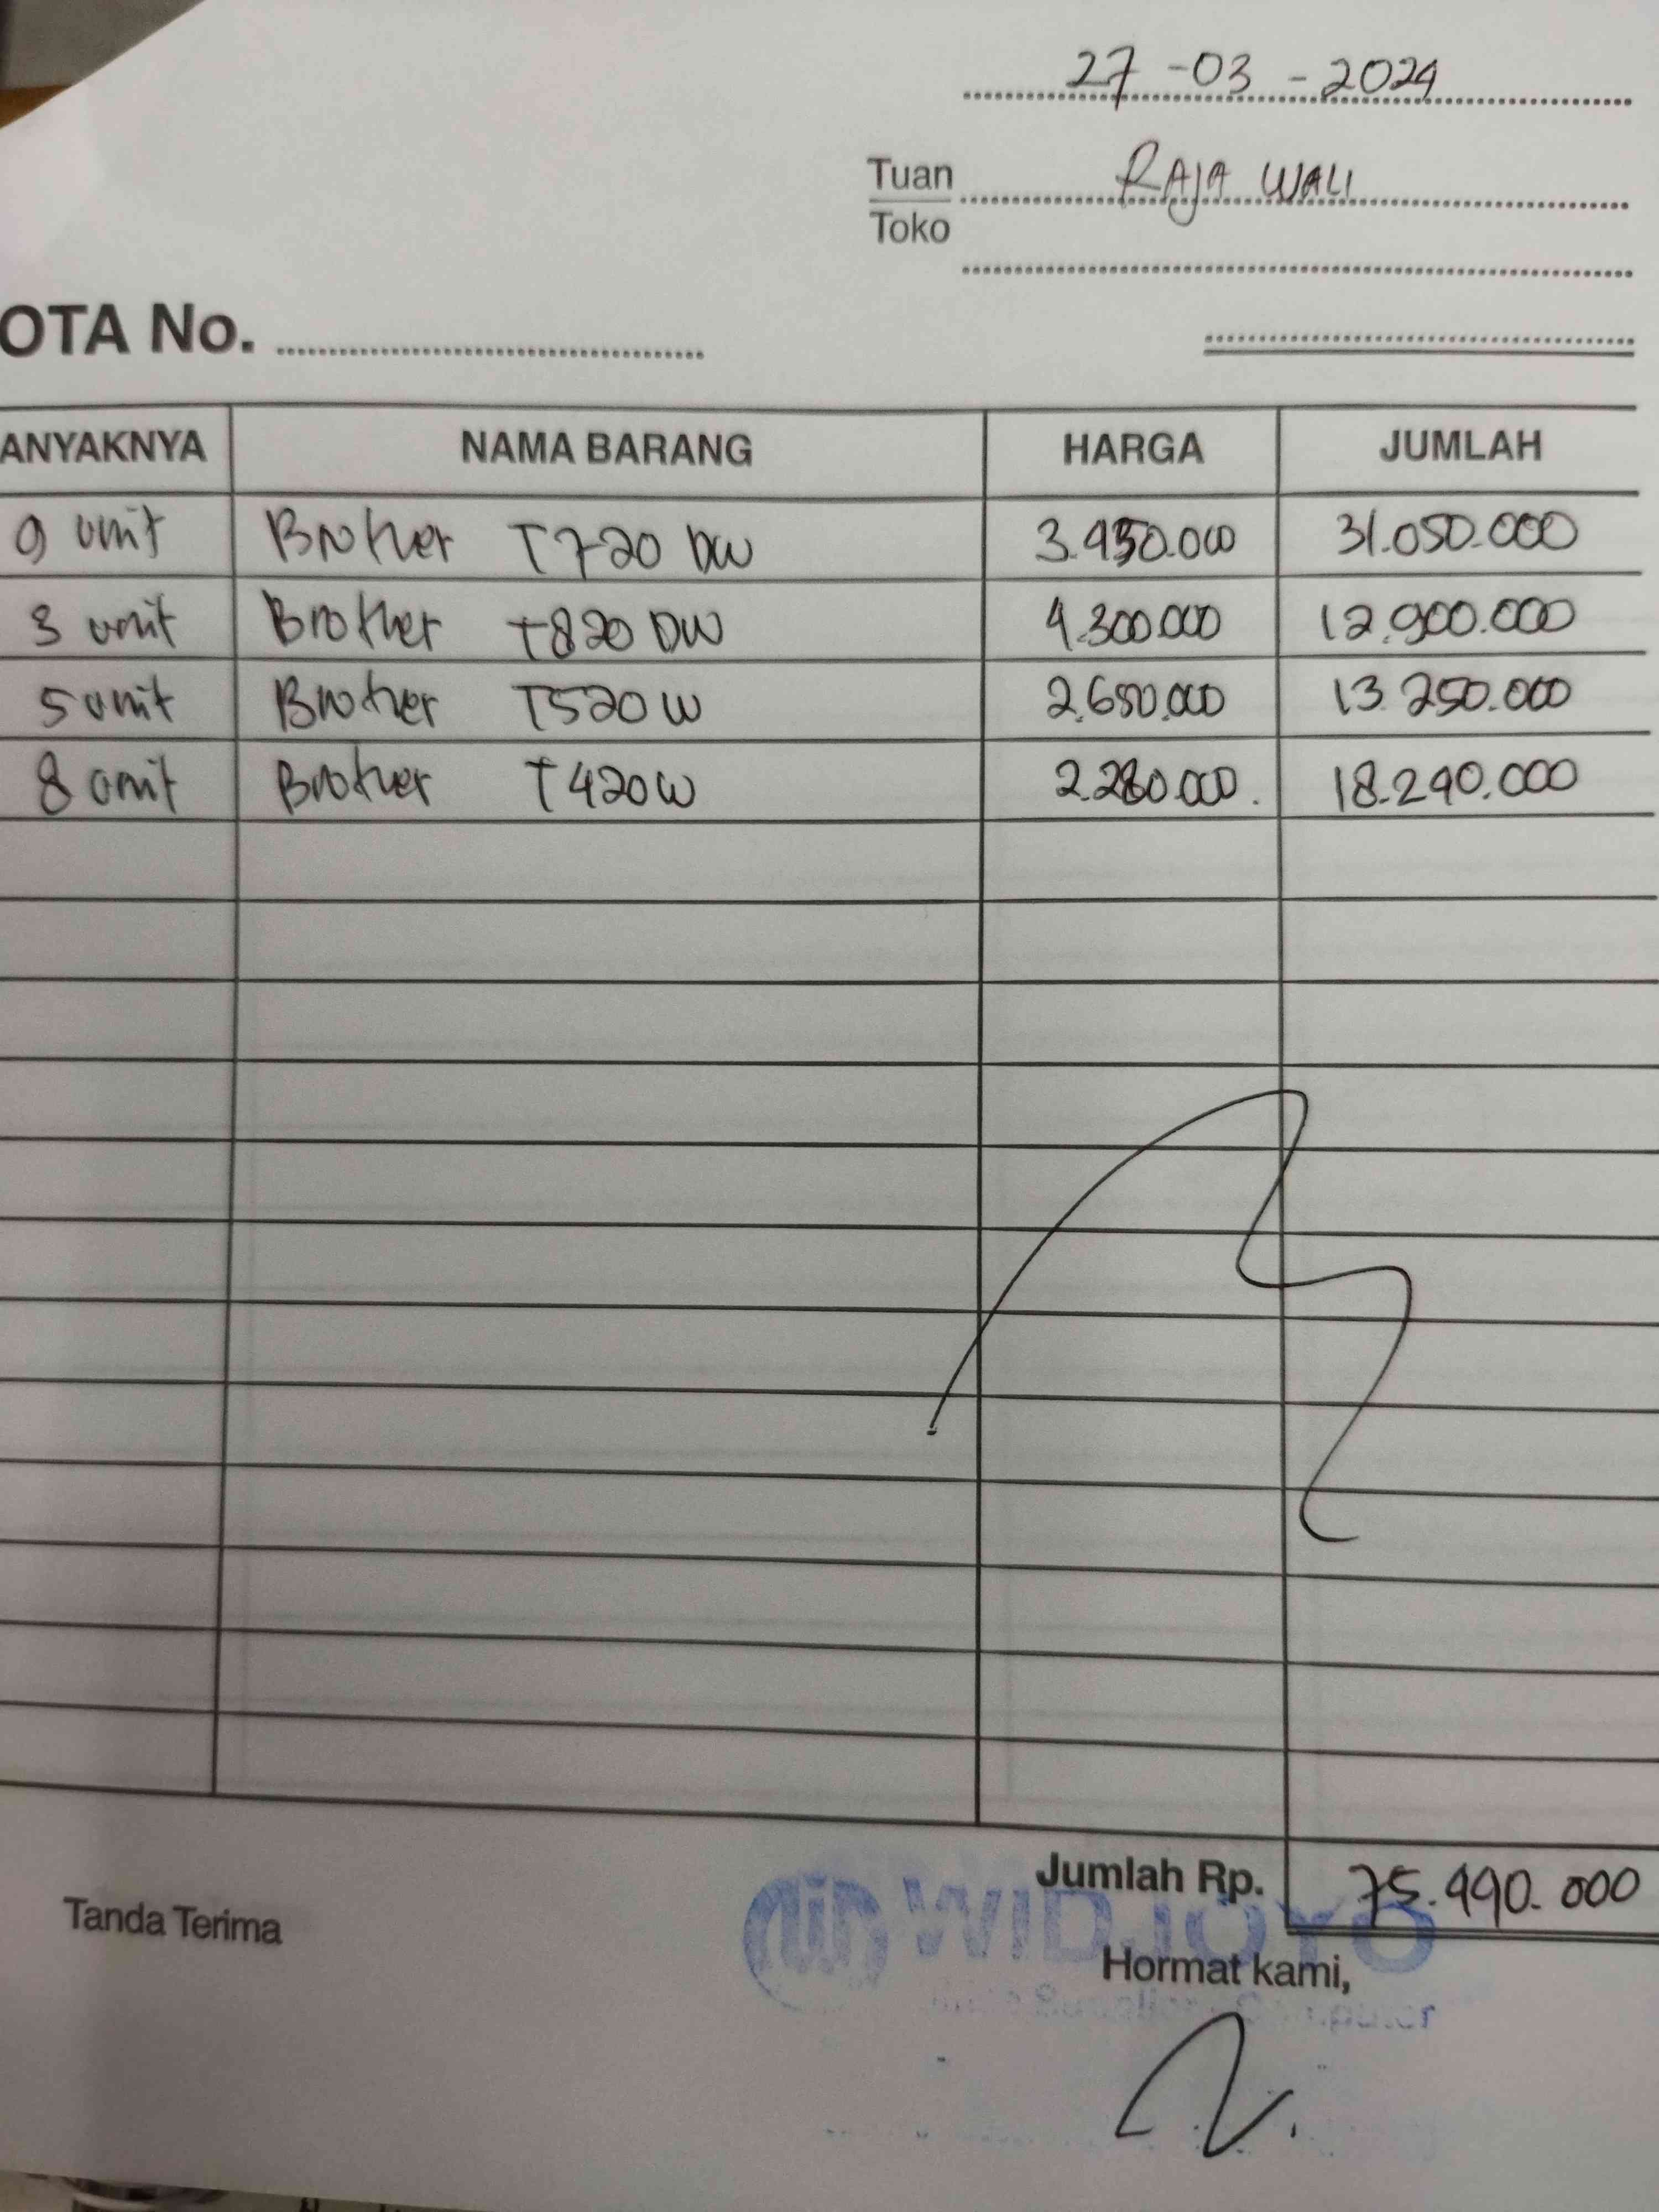 27-03-2024
Tuan RAJA WALI
Toko
OTA No.
ANYAKNYA NAMA BARANG HARGA JUMLAH
9 unit Brother T720 DW 3.450.000 31.050.000
3 unit Brother T820 DW 4.300.000 12.900.000
5 unit Brother T520 W 2.650.000 13.250.000
8 unit Brother T420 W 2.280.000. 18.240.000
Jumlah Rp. 75.440.000
Tanda Terima
WIDJOYO
Hormat kami,